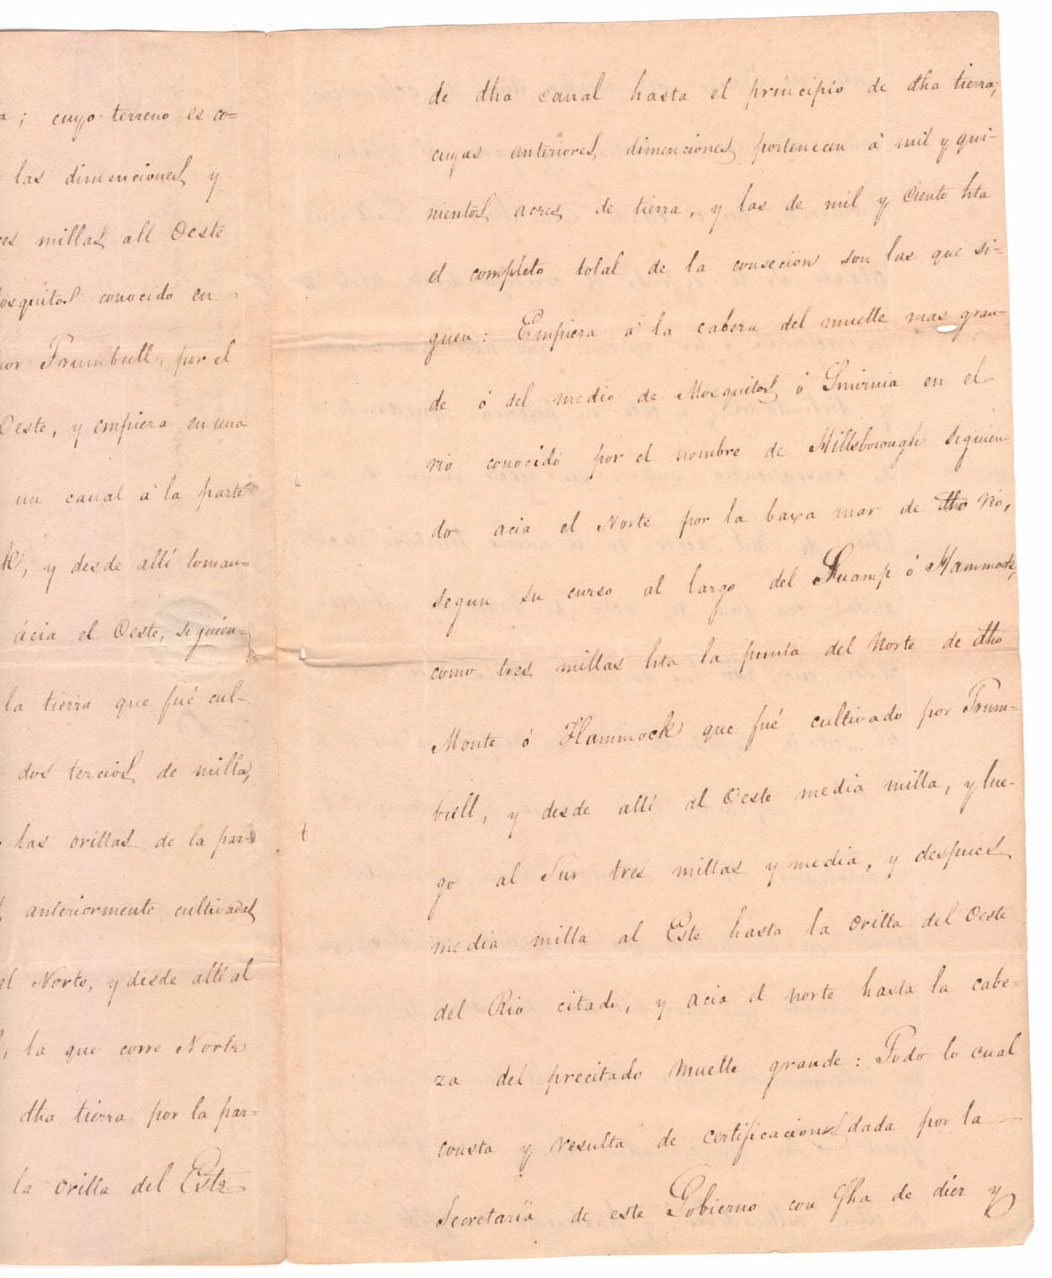 a; cuyo terreno es co=
las dimenciones y
es millas all Oeste
osquitos conocido en
or Trumbull, por el
Oeste, y empiera en una
un canal á la parte
k, y desde allí toman=
ácia el Oeste, siguien=
la tierra que fué cul=
dos tercios de milla,
las orillas de la par=
anteriormente cultivadas
el Norte, y desde allí al
, la que corre Norte
dha tierra por la par=
la orilla del Este
de dha canal hasta el principio de dha tierra;
cuyas anteriores dimenciones pertenecen á mil y qui=
nientos acres de tierra, y las de mil y ciento hta
el completo total de la consecion son las que si=
guen: Empiera á la cabera del muelle mas gran=
de ó del medio de Mosquitos ó Smirnia en el
rio conocido por el nombre de Hillsborough siguien=
do acia el Norte por la baxa mar de dho rio,
segun su curso al largo del Suamp ó Hammock,
como tres millas hta la punta del Norte de dho
Monte ó Hammock que fué cultivado por Trum=
bull, y desde allí al Oeste media milla, y lue=
go al Sur tres millas y media, y despues
media milla al Este hasta la orilla del Oeste
del Rio citado, y acia el norte hasta la cabe=
za del precitado muelle grande: Todo lo cual
consta y resulta de certificacion dada por la
Secretaria de este Gobierno con fha de dier y